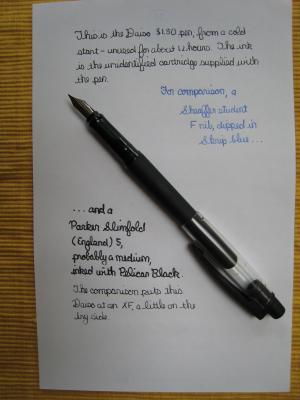 This is the Daiso $1.50 pen, from a cold
start - unused for about 12 hours. The ink
is the unidentified cartridge supplied with
the pen.
For comparison, a
Sheaffer student
F nib, dipped in
Skrip blue...
... and a
Parker Slimfold
(England) 5,
probably a medium,
inked with Pelican Black.
The comparison puts this
Daiso at an XF, a little on the
dry side.